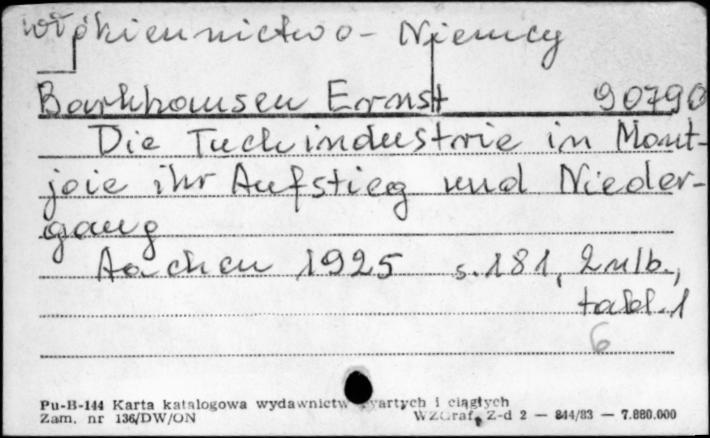 włókiennictwo - Niemcy
Barkhausen Ernst 90790
Die Tuchindustrie in Mont-
joie ihr Aufstieg und Nieder-
gang
Aachen 1925 s. 181, 2 nlb.,
tabl. 1
6
Pu-B-144 Karta katalogowa wydawnictw zwartych i ciągłych
Zam. nr 136/DW/ON WZGraf. Z-d 2 — 844/83 — 7.880.000